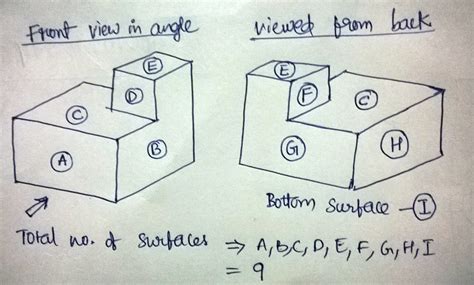 Front view in angle
viewed from back
E
D
C
A
B
E
F
C
G
H
Bottom Surface - I
Total no. of Surfaces ⇒ A,B,C,D,E,F,G,H,I
= 9